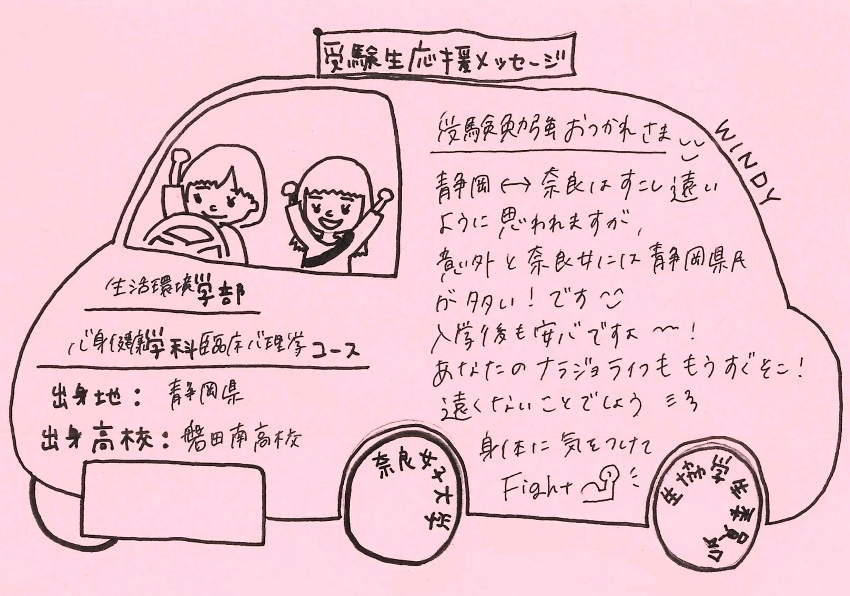 受験生応援メッセージ
WINDY
生活環境学部
心身健康学科臨床心理学コース
出身地：静岡県
出身高校：磐田南高校
受験勉強おつかれさま
静岡↔奈良はすこし遠い
ように思われますが、
意外と奈良女には静岡県民
が多い！です
入学後も安心ですよ〜！
あなたのナラジョライフももうすぐそこ！
遠くないことでしょう
身体に気をつけて
Fight
奈良女子大学
生協学生委員会